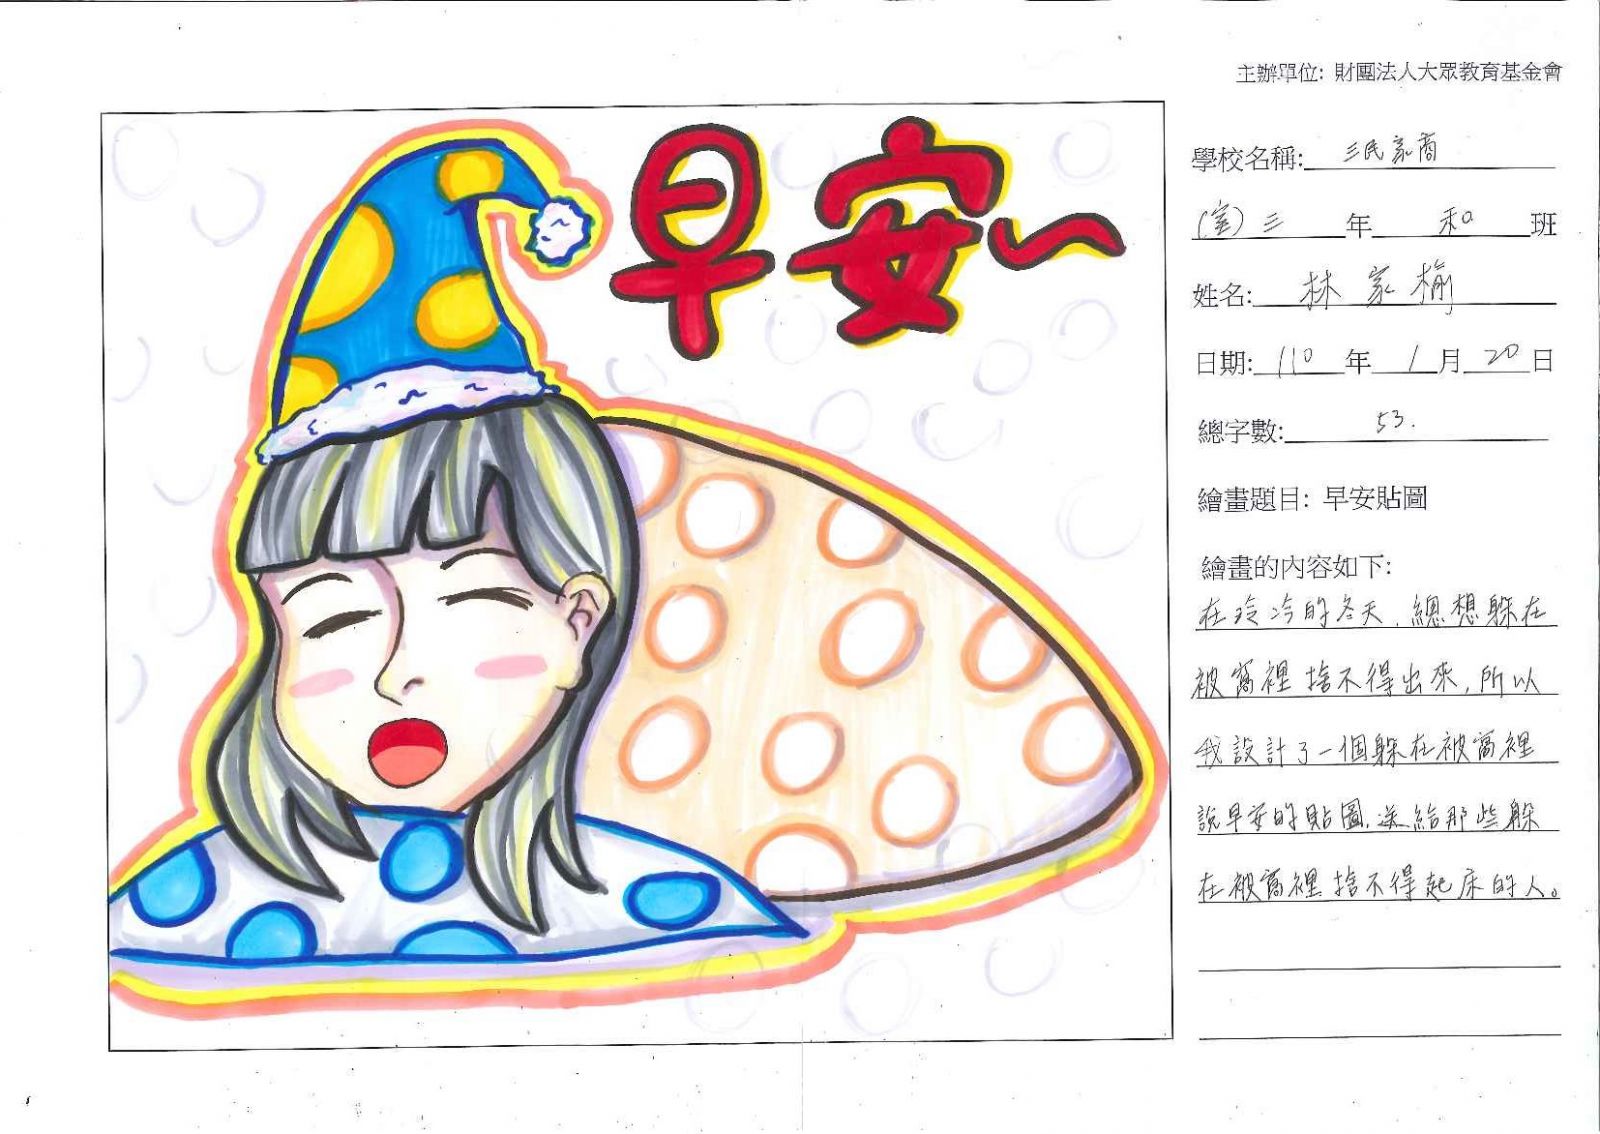 早安~
主辦單位: 財團法人大眾教育基金會
學校名稱: 三民家商
(室)三 年 和 班
姓名: 林家榆
日期: 110 年 1 月 20 日
總字數: 53.
繪畫題目: 早安貼圖
繪畫的內容如下:
在玲冷的冬天，總想躲在
被窩裡捨不得出來，所以
我設計了一個躲在被窩裡
說早安的貼圖，送給那些躲
在被窩裡捨不得起床的人。